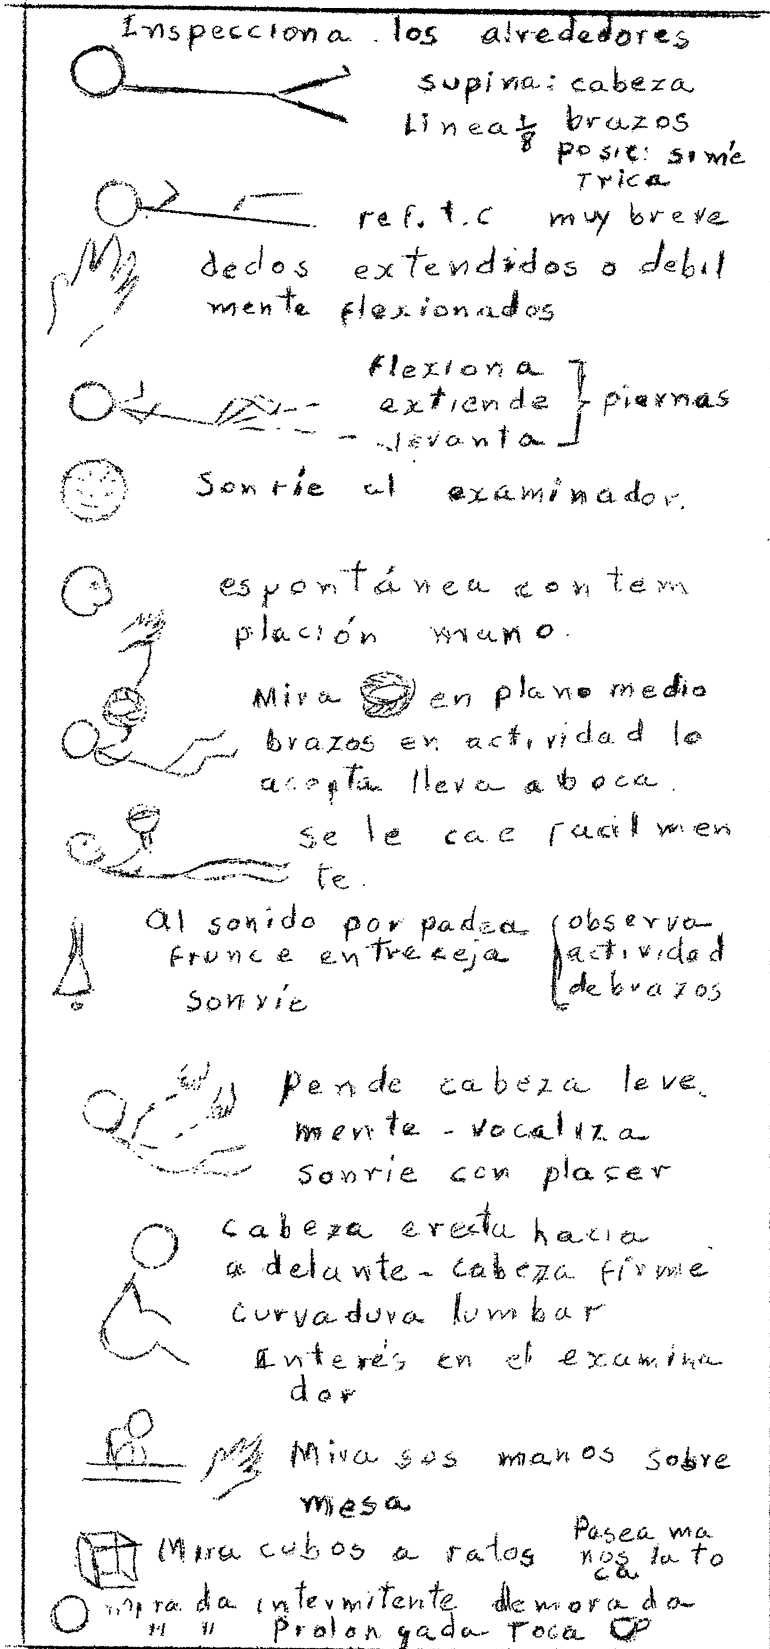 Inspecciona los alrededores
supina: cabeza
linea ⅛ brazos
posic: simé
trica
ref. t.c muy breve
dedos extendidos o debil
mente flexionados
flexiona
extiende } piernas
levanta
Sonríe al examinador.
espontánea contem
plación mano.
Mira en plano medio
brazos en actividad lo
acepta lleva a boca.
se le cae facilmen
te.
Al sonido parpadea observa
frunce entreceja actividad
sonríe de brazos
Pende cabeza leve.
mente - vocaliza
sonrie con placer
cabeza erecta hacia
adelante - cabeza firme
curvadura lumbar
Interés en el examina
dor
Mira sus manos sobre
mesa
Mira cubos a ratos Pasea ma
nos la to
ca
mirada intermitente demorada
" " Prolongada Toca